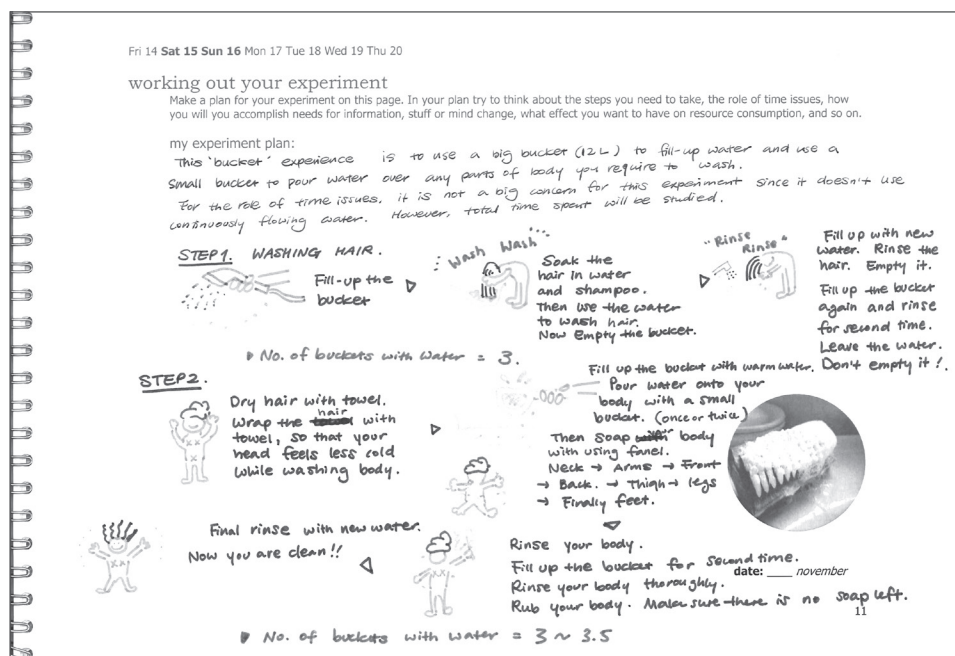 Fri 14 Sat 15 Sun 16 Mon 17 Tue 18 Wed 19 Thu 20
working out your experiment
Make a plan for your experiment on this page. In your plan try to think about the steps you need to take, the role of time issues, how
you will you accomplish needs for information, stuff or mind change, what effect you want to have on resource consumption, and so on.
my experiment plan:
This 'bucket' experience is to use a big bucket (12L) to fill-up water and use a
small bucket to pour water over any parts of body you require to wash.
For the role of time issues, it is not a big concern for this experiment since it doesn't use
continuously flowing water. However, total time spent will be studied.
STEP1. WASHING HAIR.
Fill-up the
bucket
Wash Wash
Soak the
hair in water
and shampoo.
Then use the water
to wash hair.
Now Empty the bucket.
"Rinse
Rinse"
Fill up with new
water. Rinse the
hair. Empty it.
Fill up the bucket
again and rinse
for second time.
Leave the water.
Don't empty it!.
No. of buckets with water = 3.
STEP2.
Dry hair with towel.
Wrap the hair with
towel, so that your
head feels less cold
while washing body.
Fill up the bucket with warm water.
Pour water onto your
body with a small
bucket. (once or twice)
Then soap body
with using fanel.
Neck → Arms → Front
→ Back. → Thigh → legs
→ Finally feet.
Rinse your body.
Fill up the bucket for second time.
Rinse your body thoroughly.
Rub your body. Make sure there is no soap left.
Final rinse with new water.
Now you are clean!!
date: ____ november
11
No. of buckets with water = 3 ~ 3.5